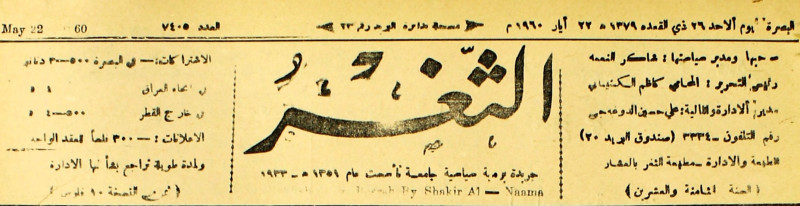 البصرة يوم الاحد ٢٦ ذي القعده ١٣٧٩ ه ٢٢ أيار ١٩٦٠ م
مسجلة بدائرة البريد رقم ٢٣
العدد ٧٤٠٥
May 22 60
صاحبها ومدير سياستها : شاكر النعمه
رئيس التحرير : المحامي كاظم
مدير الادارة والمالية : علي حسين
رقم التلفون – ٣٣٣٤ (صندوق البريد ٢٠)
المطبعة والادارة – مطبعة الثغر بالعشار
(السنة الثامنة والعشرين)
الثَّغْر
جريدة يومية سياسية جامعة تأسست عام ١٣٥١ ه – ١٩٣٣
By Shakir Al – Naama
الاشتراكات : – في البصرة ٥٠٠-٣ دنانير
في انحاء العراق
في خارج القطر ٥٠٠-٤
الاعلانات : – ٣٠٠ فلساً للعقد الواحد
ولمدة طويلة تراجع بشأنها الادارة
(ثمن النسخة ١٠ فلوس)